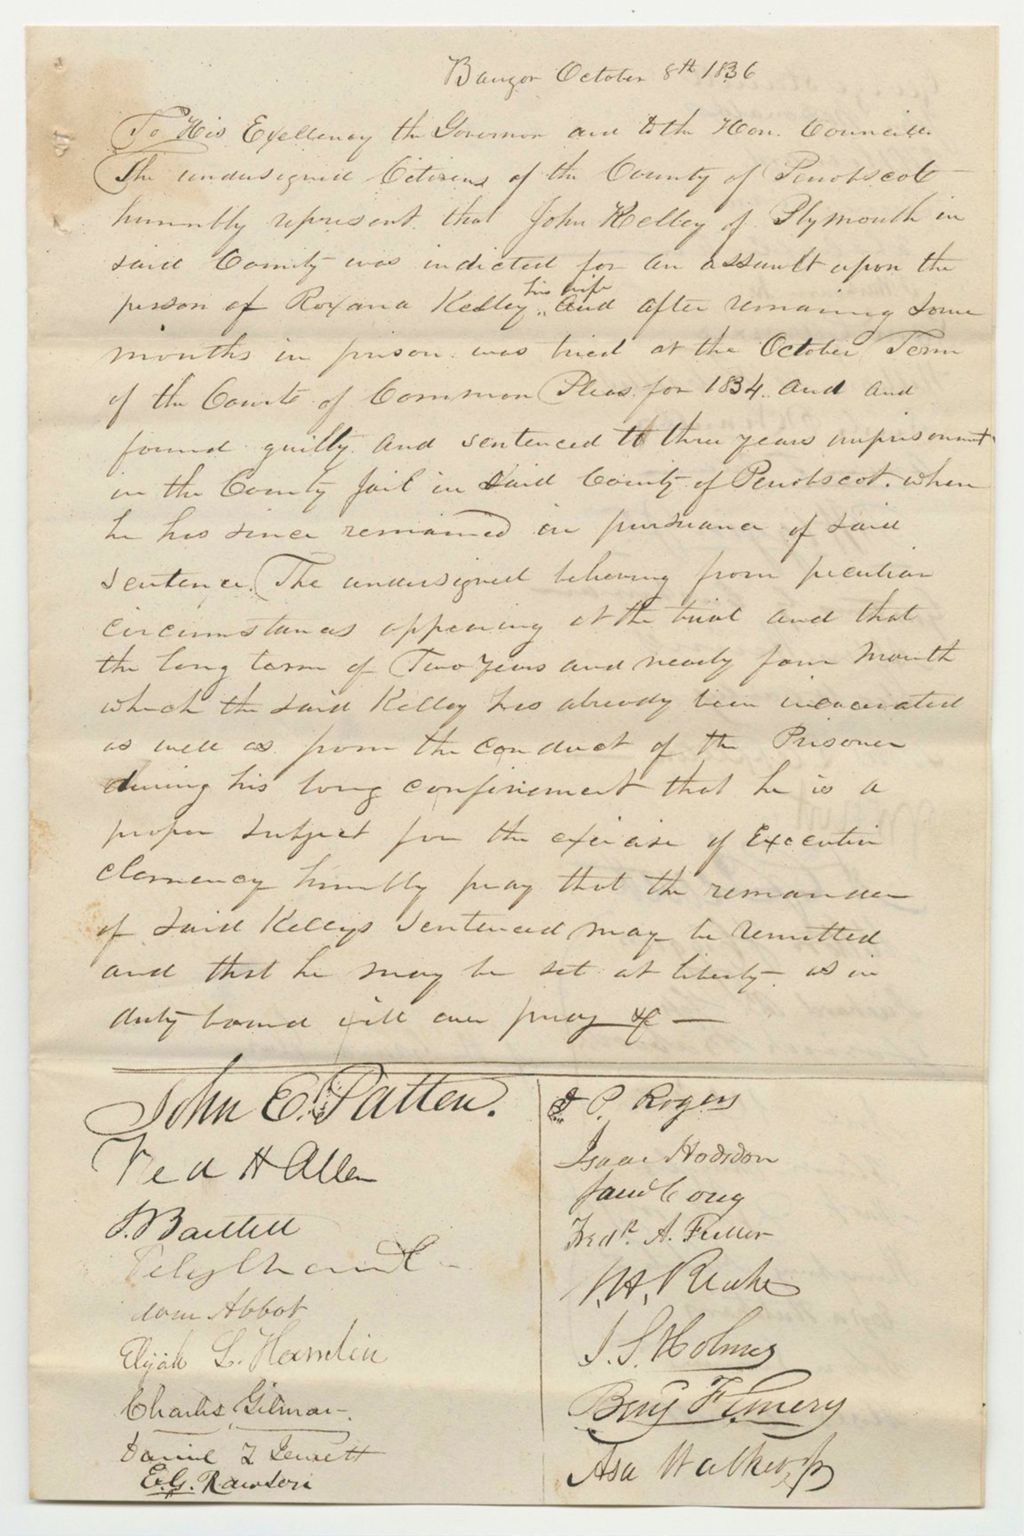 Bangor October 8th 1836
To His Exellency the Governor and to the Hon. Council.
The undersigned Citizens of the County of Penobscot
humbly represent that John Kelley of Plymouth in
said County was indicted for an assault upon the
person of Roxana Kelley his wife and after remaining some
months in prison was tried at the October Term
of the Courts of Common Pleas for 1834 and and
found guilty and sentenced to three years imprisonment
in the County Jail in said County of Penobscot. when
he has since remained in pursuance of said
sentence. The undersigned believing from peculiar
circumstances appearing at the trial and that
the long term of Two years and nearly four Month
which the said Kelley has already been incarcerated
as well as from the conduct of the Prisoner
during his long confinement that he is a
proper subject for the exercise of Executive
Clemency humbly pray that the remainder
of said Kelleys Sentenced may be remitted
and that he may be set at liberty as in
duty bound will ever pray &c —
John E. Patten.
Fred H Allen
S. Bartlett
Abbot
Elijah L. Hamlin
Charles Gilman.
Daniel T Jewett
E.G. Rawson
J P. Rogers
Isaac Hodsdon
Fredk. A. Fuller
J. S. Holmes
Benj F Emery
Asa Walker Jr